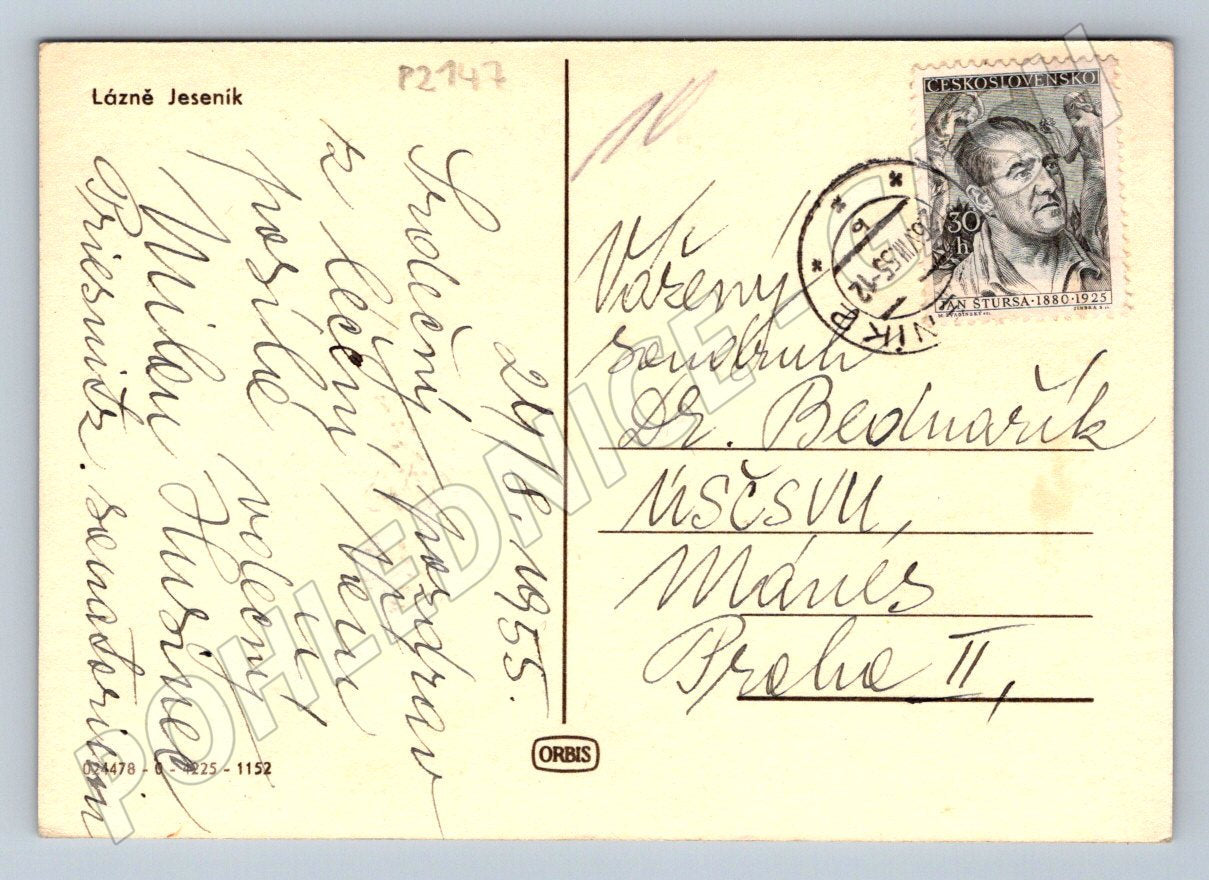 Lázně Jeseník
P2147
10
24/8. 1955.
Srdečný pozdrav
z léčení Vám
posílá
vděčný
Milan Husinec
Priesnitz. sanatorium
024478 - 0 - 4225 - 1152
ORBIS
ČESKOSLOVENSKO
30
h
JAN ŠTURSA · 1880 · 1925
b
VIII.55-12
NÍK
Vážený
soudruh
Dr. Bednařík
ÚSČSVU,
Mánes
Praha II,
POHLEDNICE